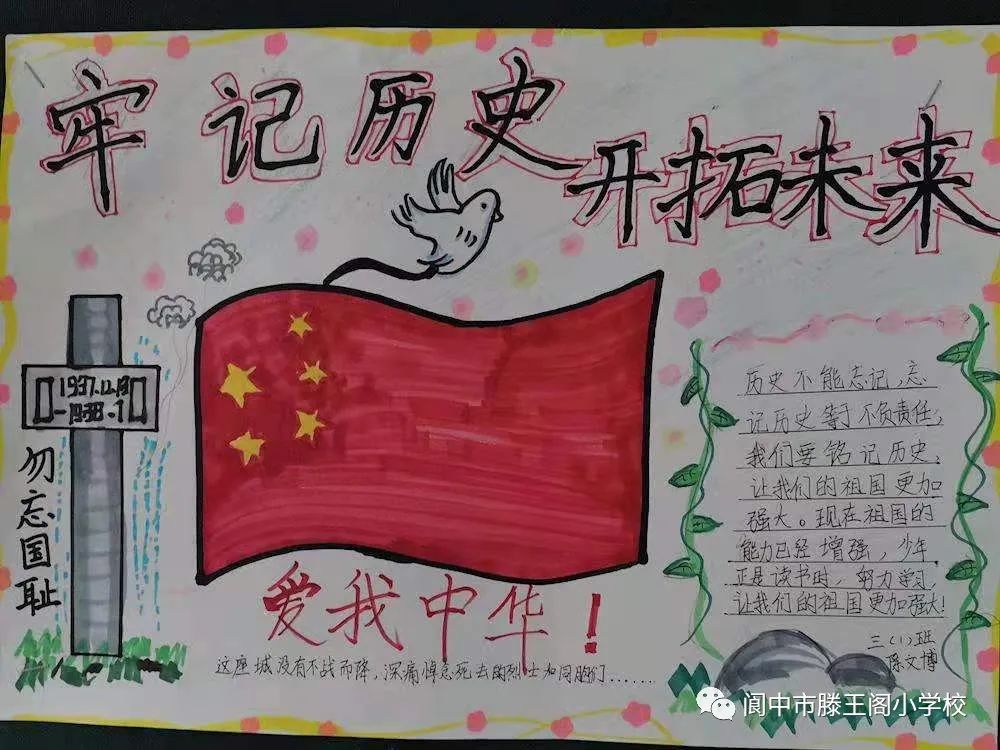 牢记历史
开拓未来
1937.12.13
-1938.1
勿忘国耻
历史不能忘记,忘
记历史等于不负责任,
我们要铭记历史,
让我们的祖国更加
强大。现在祖国的
能力已经增强,少年
正是读书时,努力学习,
让我们的祖国更加强大!
三(1)班
陈文博
爱我中华!
这座城没有不战而降,深痛悼念死去的烈士和同胞们......
阆中市滕王阁小学校